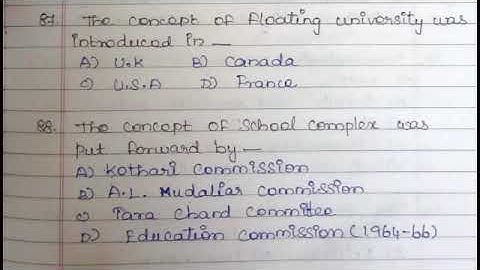 87. The concept of floating university was
introduced in —
A) U.K B) Canada
C) U.S.A D) France
88. The concept of School complex was
put forward by —
A) Kothari Commission
B) A.L. Mudaliar Commission
C) Tara Chand Committee
D) Education Commission (1964-66)